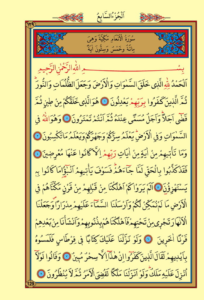 الجزء السابع
سورة الأنعام مكية وهي
مائة وخمس وستون آية
بِسْمِ اللهِ الرَّحْمٰنِ الرَّحِيمِ
اَلْحَمْدُ لِلّٰهِ الَّذِي خَلَقَ السَّمٰوَاتِ وَالْاَرْضَ وَجَعَلَ الظُّلُمَاتِ وَالنُّورَ
ثُمَّ الَّذِينَ كَفَرُوا بِرَبِّهِمْ يَعْدِلُونَ هُوَ الَّذِي خَلَقَكُمْ مِنْ طِينٍ ثُمَّ
قَضٰى اَجَلًا وَاَجَلٌ مُسَمًّى عِنْدَهُ ثُمَّ اَنْتُمْ تَمْتَرُونَ وَهُوَ اللهُ
فِي السَّمٰوَاتِ وَفِي الْاَرْضِ يَعْلَمُ سِرَّكُمْ وَجَهْرَكُمْ وَيَعْلَمُ مَا تَكْسِبُونَ
وَمَا تَأْتِيهِمْ مِنْ اٰيَةٍ مِنْ اٰيَاتِ رَبِّهِمْ اِلَّا كَانُوا عَنْهَا مُعْرِضِينَ
فَقَدْ كَذَّبُوا بِالْحَقِّ لَمَّا جَاءَهُمْ فَسَوْفَ يَأْتِيهِمْ اَنْبٰٓؤُا مَا كَانُوا بِهِ
يَسْتَهْزِؤُنَ اَلَمْ يَرَوْا كَمْ اَهْلَكْنَا مِنْ قَبْلِهِمْ مِنْ قَرْنٍ مَكَّنَّاهُمْ فِي
الْاَرْضِ مَا لَمْ نُمَكِّنْ لَكُمْ وَاَرْسَلْنَا السَّمَاءَ عَلَيْهِمْ مِدْرَارًا وَجَعَلْنَا
الْاَنْهَارَ تَجْرِي مِنْ تَحْتِهِمْ فَاَهْلَكْنَاهُمْ بِذُنُوبِهِمْ وَاَنْشَأْنَا مِنْ بَعْدِهِمْ
قَرْنًا اٰخَرِينَ وَلَوْ نَزَّلْنَا عَلَيْكَ كِتَابًا فِي قِرْطَاسٍ فَلَمَسُوهُ
بِاَيْدِيهِمْ لَقَالَ الَّذِينَ كَفَرُوا اِنْ هٰذَا اِلَّا سِحْرٌ مُبِينٌ وَقَالُوا لَوْلَا
اُنْزِلَ عَلَيْهِ مَلَكٌ وَلَوْ اَنْزَلْنَا مَلَكًا لَقُضِيَ الْاَمْرُ ثُمَّ لَا يُنْظَرُونَ